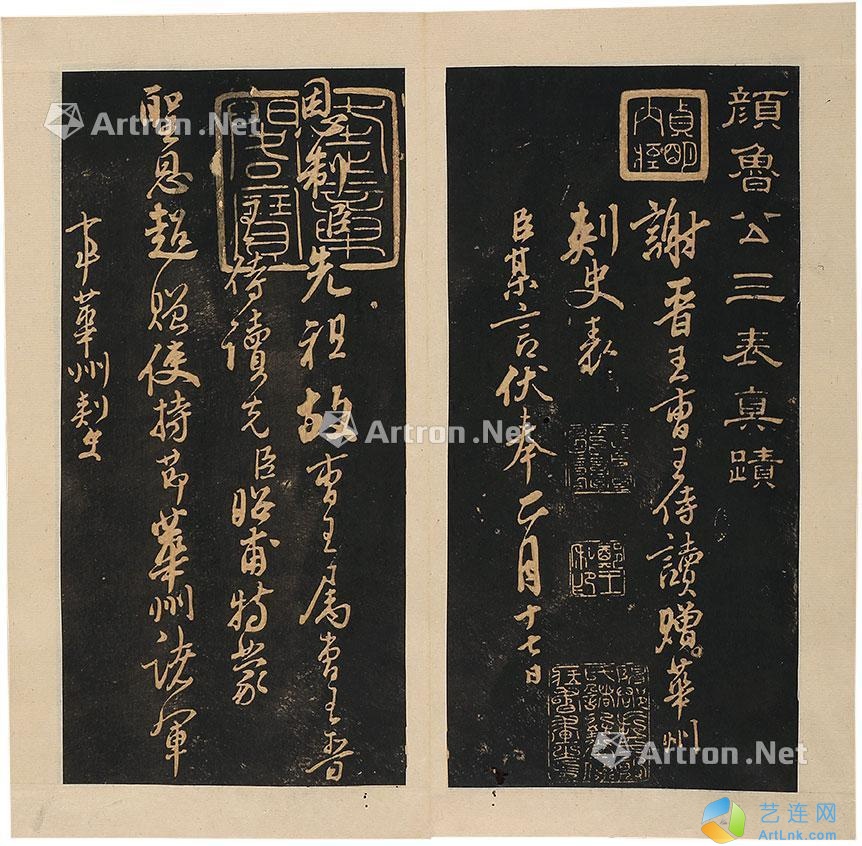 顏魯公三表真蹟
謝晉王曹王侍讀贈華州
刺史表
臣某言伏奉二月十七日
奎章閣寶
恩制臣先祖故曹王屬曹王晉
王侍讀先臣昭甫特蒙
聖恩超贈使持節華州諸軍
事華州刺史
Artron.Net
Artron.Net
Artron.Net
Artron.Net
艺连网
ArtLnk.com